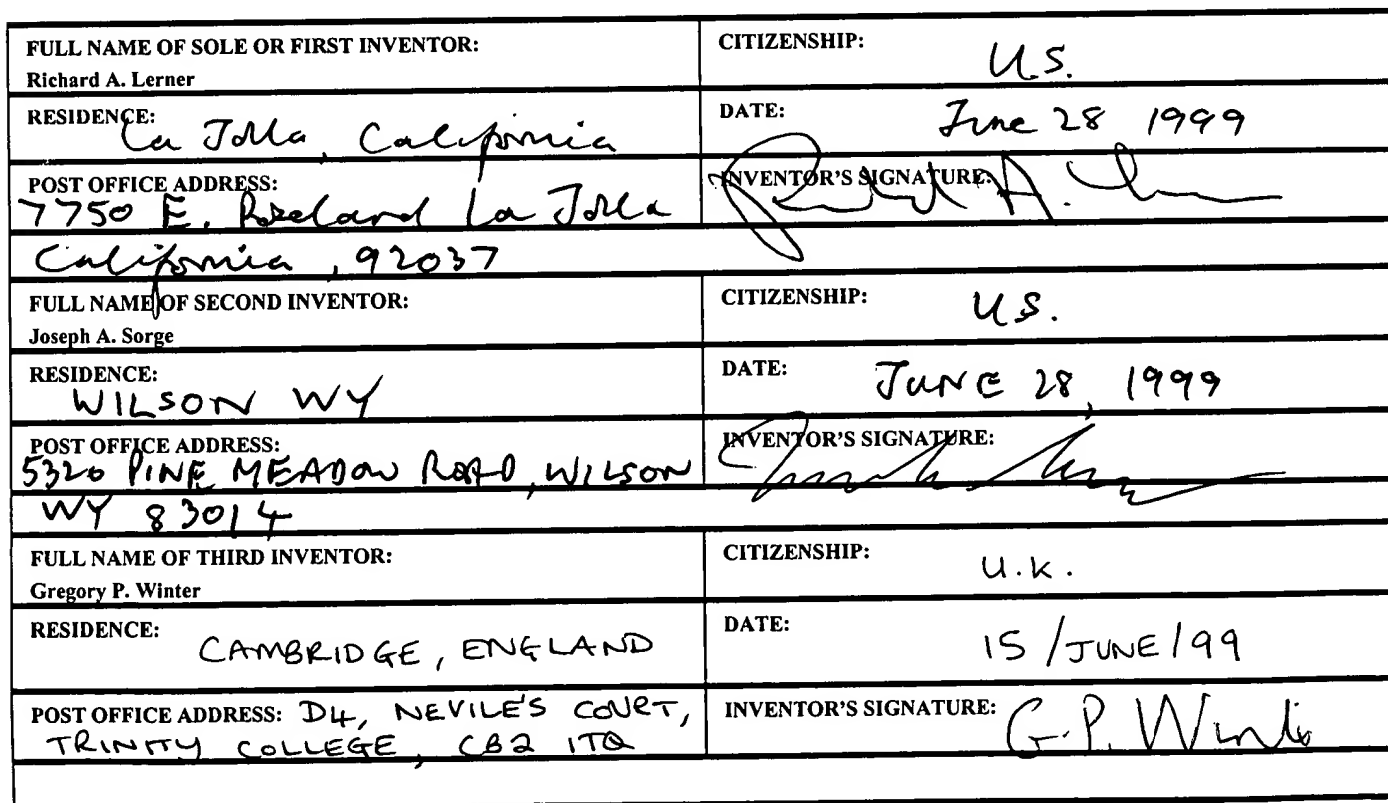 FULL NAME OF SOLE OR FIRST INVENTOR:
Richard A. Lerner
CITIZENSHIP: U.S.
RESIDENCE: La Jolla, California
DATE: June 28 1999
POST OFFICE ADDRESS:
7750 E. Roseland La Jolla
California, 92037
INVENTOR'S SIGNATURE:
FULL NAME OF SECOND INVENTOR:
Joseph A. Sorge
CITIZENSHIP: U.S.
RESIDENCE:
WILSON WY
DATE: JUNE 28, 1999
POST OFFICE ADDRESS:
5320 PINE MEADOW ROAD, WILSON
WY 83014
INVENTOR'S SIGNATURE:
FULL NAME OF THIRD INVENTOR:
Gregory P. Winter
CITIZENSHIP: U.K.
RESIDENCE: CAMBRIDGE, ENGLAND
DATE: 15/JUNE/99
POST OFFICE ADDRESS: D4, NEVILE'S COURT,
TRINITY COLLEGE, CB2 1TQ
INVENTOR'S SIGNATURE: G.P. Winter